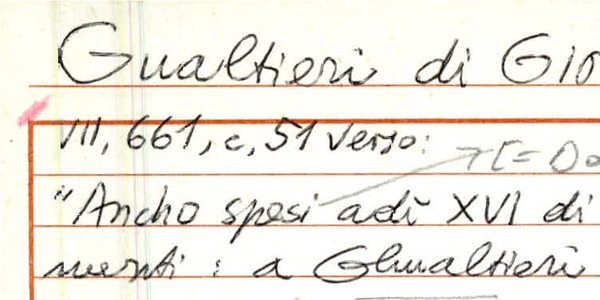 Gualtieri di Gio
VIII, 661, c, 51 verso:
[= Do
"Ancho spesi adì XVI di
menti : a Ghualtieri